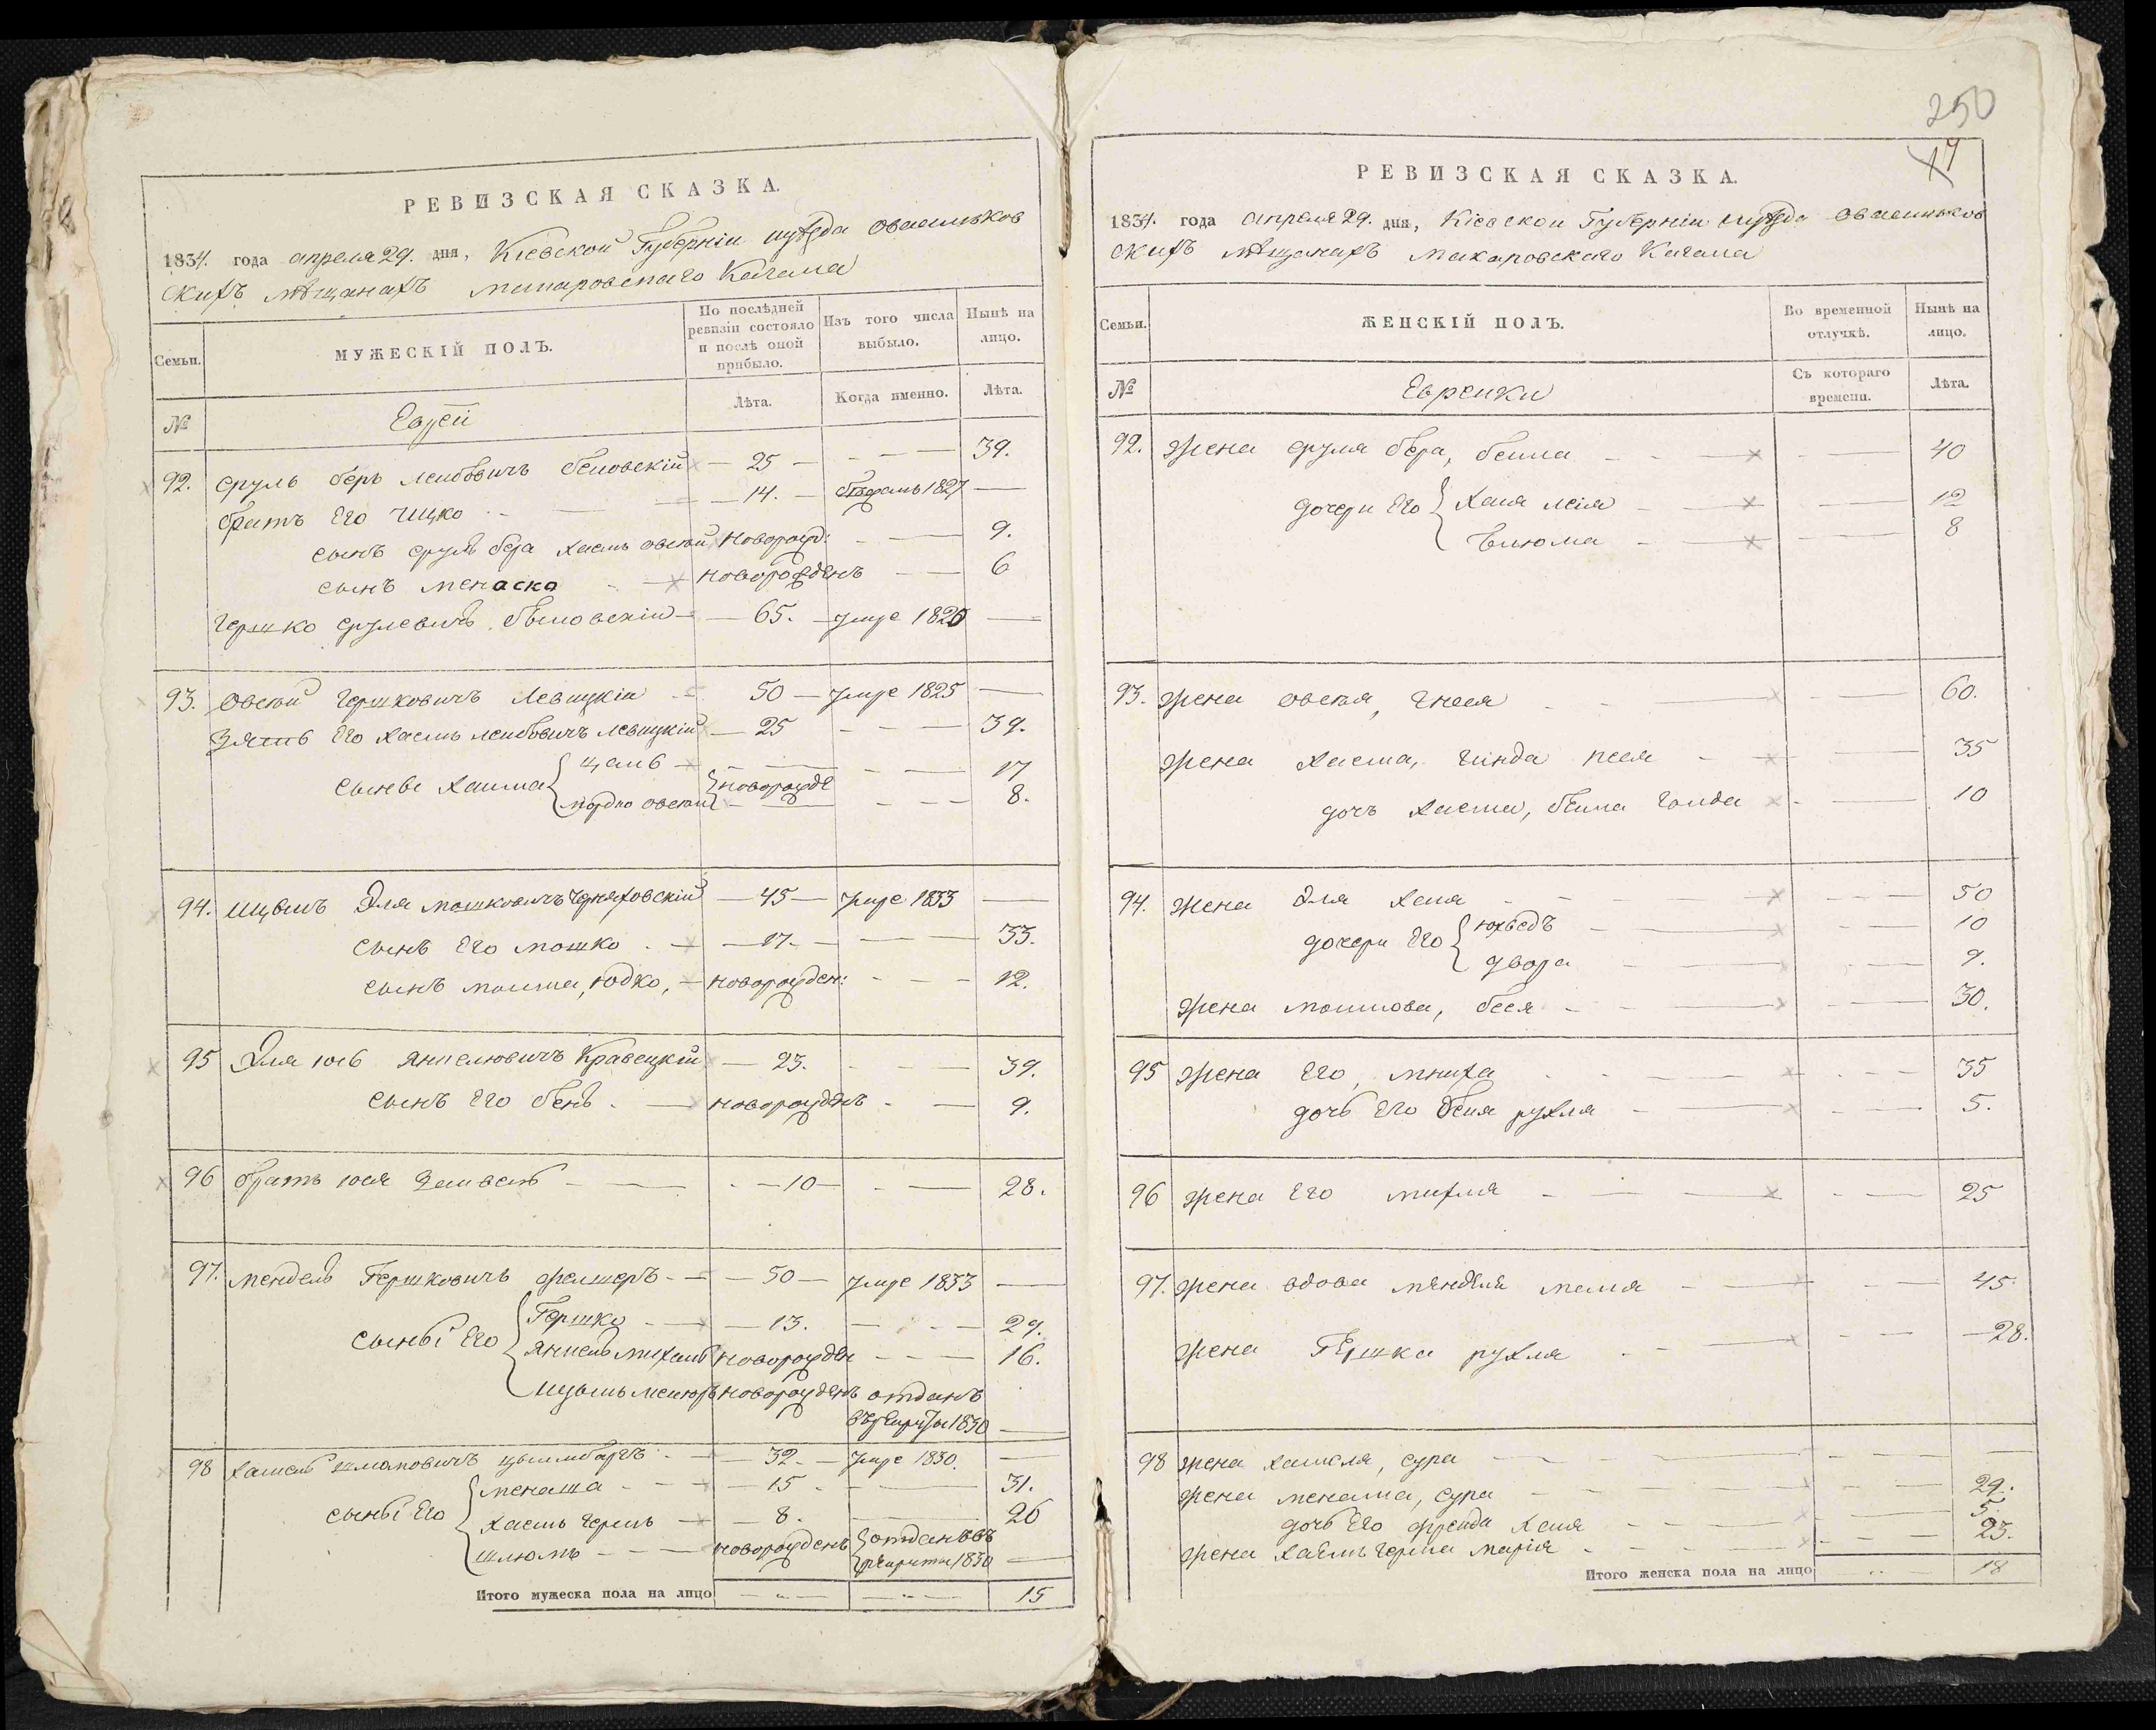 РЕВИЗСКАЯ СКАЗКА.
1834. года апреля 29. дня, Кіевской Губерніи
скихъ мѣщанахъ Макаровскаго Кагала
Семьи.
МУЖЕСКІЙ ПОЛЪ.
По послѣдней ревизіи состояло и послѣ оной прибыло.
Изъ того числа выбыло.
Нынѣ на лицо.
№
Евреи
Лѣта.
Когда именно.
Лѣта.
92. Сруль беръ Лейбовичъ 25 39.
братъ Его Ицко 14. 1827
сынъ Сруля бера Хаимъ овсей новорожд: 9.
сынъ Менаско новорожденъ 6
Гершко Срулевичъ 65. умре 1820
93. Овсей Гершковичъ Левицкій 50 умре 1825
Зять Его Хаимъ Лейбовичъ Левицкій 25 39.
сынве Хаима 17
Мордко овсей новорожде 8.
94. Ицыкъ Эля Мошковичъ Черняховскій 45 умре 1833
сынъ Его Мошко 17. 33.
сынъ Мошка, Юдко, новорожден: 12.
95 Эля Юсь Янкелювичъ Кравецкій 23. 39.
сынъ Его бенъ новорожденъ 9.
96 братъ Юся Зельвель 10 28.
97. Мендель Гершковичъ фельшеръ 50 умре 1833
сыны Его Гершко 13. 29.
Янкель Михель новорожден 16.
новорожденъ отданъ
въ рекруты 1830
98 Хаскель Шлемовичъ 32. умре 1830.
сыны Его Менаша 15 31.
Хаимъ Гершъ 8. 26
Шлюмъ новорожденъ отданъ въ
рекруты 1830
Итого мужеска пола на лицо 15
250
17
РЕВИЗСКАЯ СКАЗКА.
1834. года апреля 29. дня, Кіевской Губерніи
скихъ мѣщанахъ Макаровскаго Кагала
Семьи.
ЖЕНСКІЙ ПОЛЪ.
Во временной отлучкѣ.
Нынѣ на лицо.
№
Еврейки
Съ котораго времени.
Лѣта.
92. Жена Сруля бера, бейла 40
дочери Его Хая Лея 12
Блюма 8
93. Жена овсея, Гнеся 60.
Жена Хаима, Гинда Песя 35
дочь Хаима, бейла Голда 10
94. Жена Эля Хая 50
дочери Его Юхведъ 10
Двора 9.
Жена Мошкова, бася 30.
95 Жена Его, Мниха 35
дочь Его бейя рухля 5.
96 Жена Его Михля 25
97. Жена вдова Менделя Маля 45.
Жена Гершка рухля 28.
98 Жена Хаскеля, сура
Жена Менаша, сура 29.
дочь Его фрейда Хая 5.
Жена Хаимъ Герша Марія 23.
Итого женска пола на лицо 18